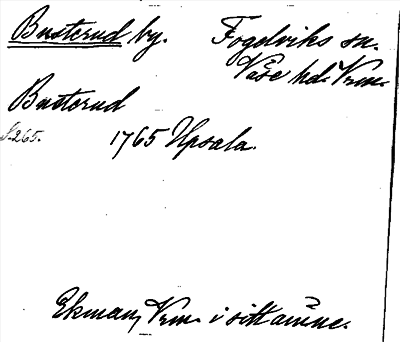 Busterud by. Fogelviks sn.
Väse hd. Vrm.
Busterud
s. 265. 1765 Upsala.
Ekman, Vrm. i sitt ämne.